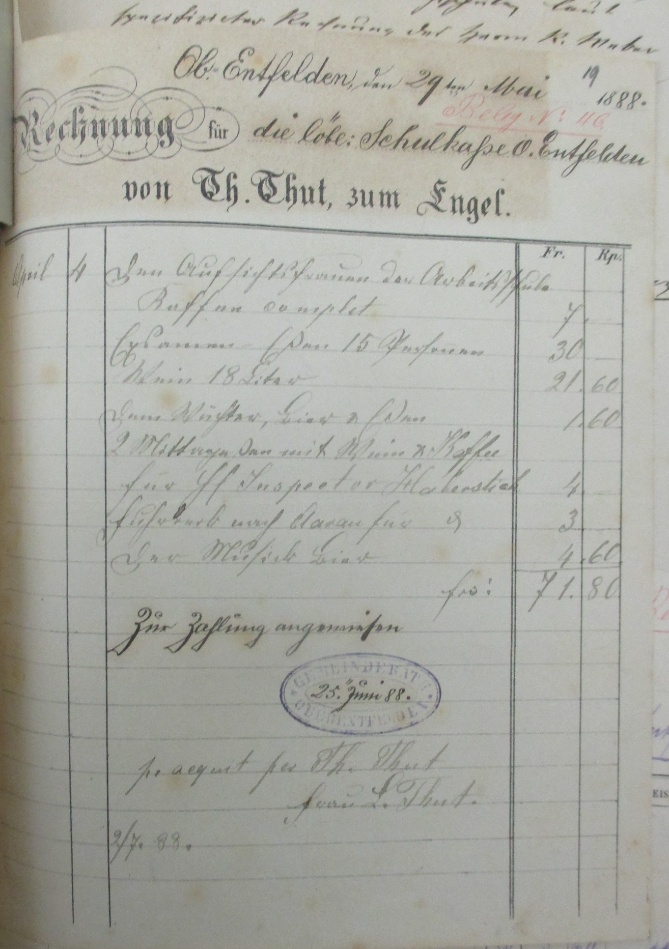 spezifizirter Rechnung des Herrn R. Weber
Ob-Entfelden, den 29ten Mai 1888.
19
Beleg No. 116
Rechnung für die löbl: Schulkasse O. Entfelden
von Th. Thut, zum Engel.
Fr. Rp.
April 4 Den Aufsichtsfrauen der Arbeitsschule
Kaffee complet 7.
Exsamen Eßen 15 Personen 30
Wein 18 Liter 21.60
Dem Wächter, Bier & Eßen 1.60
2 Mittageßen mit Wein & Kaffee
für HH Inspector Haberstich 4
Fuhrwerk nach Aarau für d 3
Der Musick Bier 4.60
frs: 71.80
Zur Zahlung angewiesen
GEMEINDERATH
25. Juni 88.
OBERENTFELDEN
pr acquit per Th. Thut
Frau L. Thut.
2/7. 88.